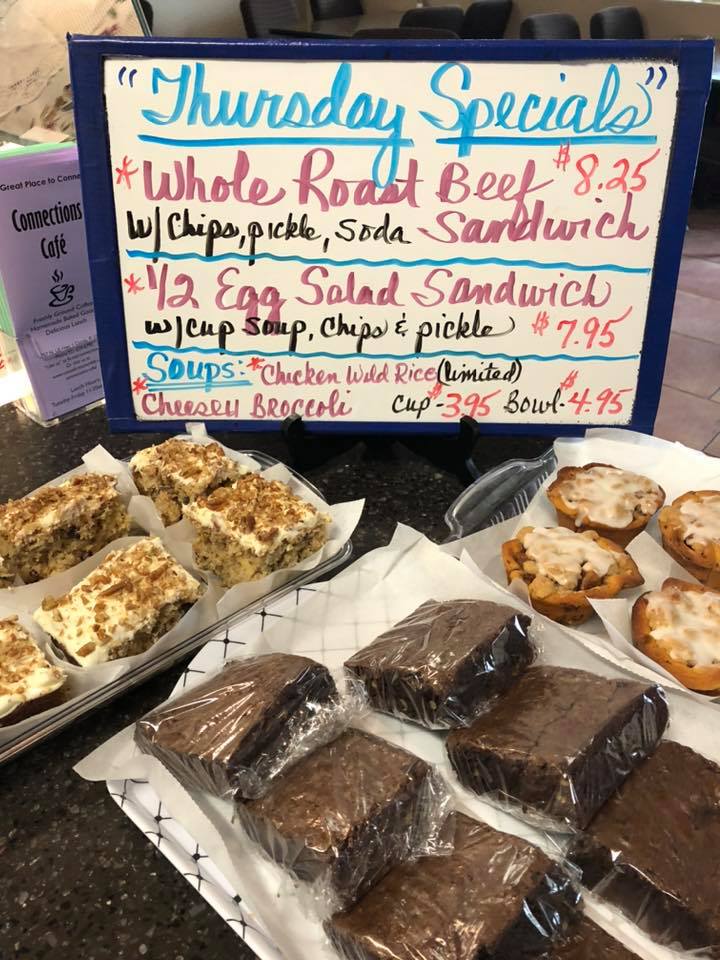 "Thursday Specials"
* Whole Roast Beef $8.25
w/ Chips, pickle, Soda Sandwich
* 1/2 Egg Salad Sandwich
w/cup soup, Chips & pickle $7.95
Soups: * Chicken Wild Rice (limited)
* Cheesey Broccoli Cup - $3.95 Bowl - $4.95
Great Place to Conne
Connections
Café
Freshly Ground Coffee
Homemade Baked Goods
Delicious Lunch